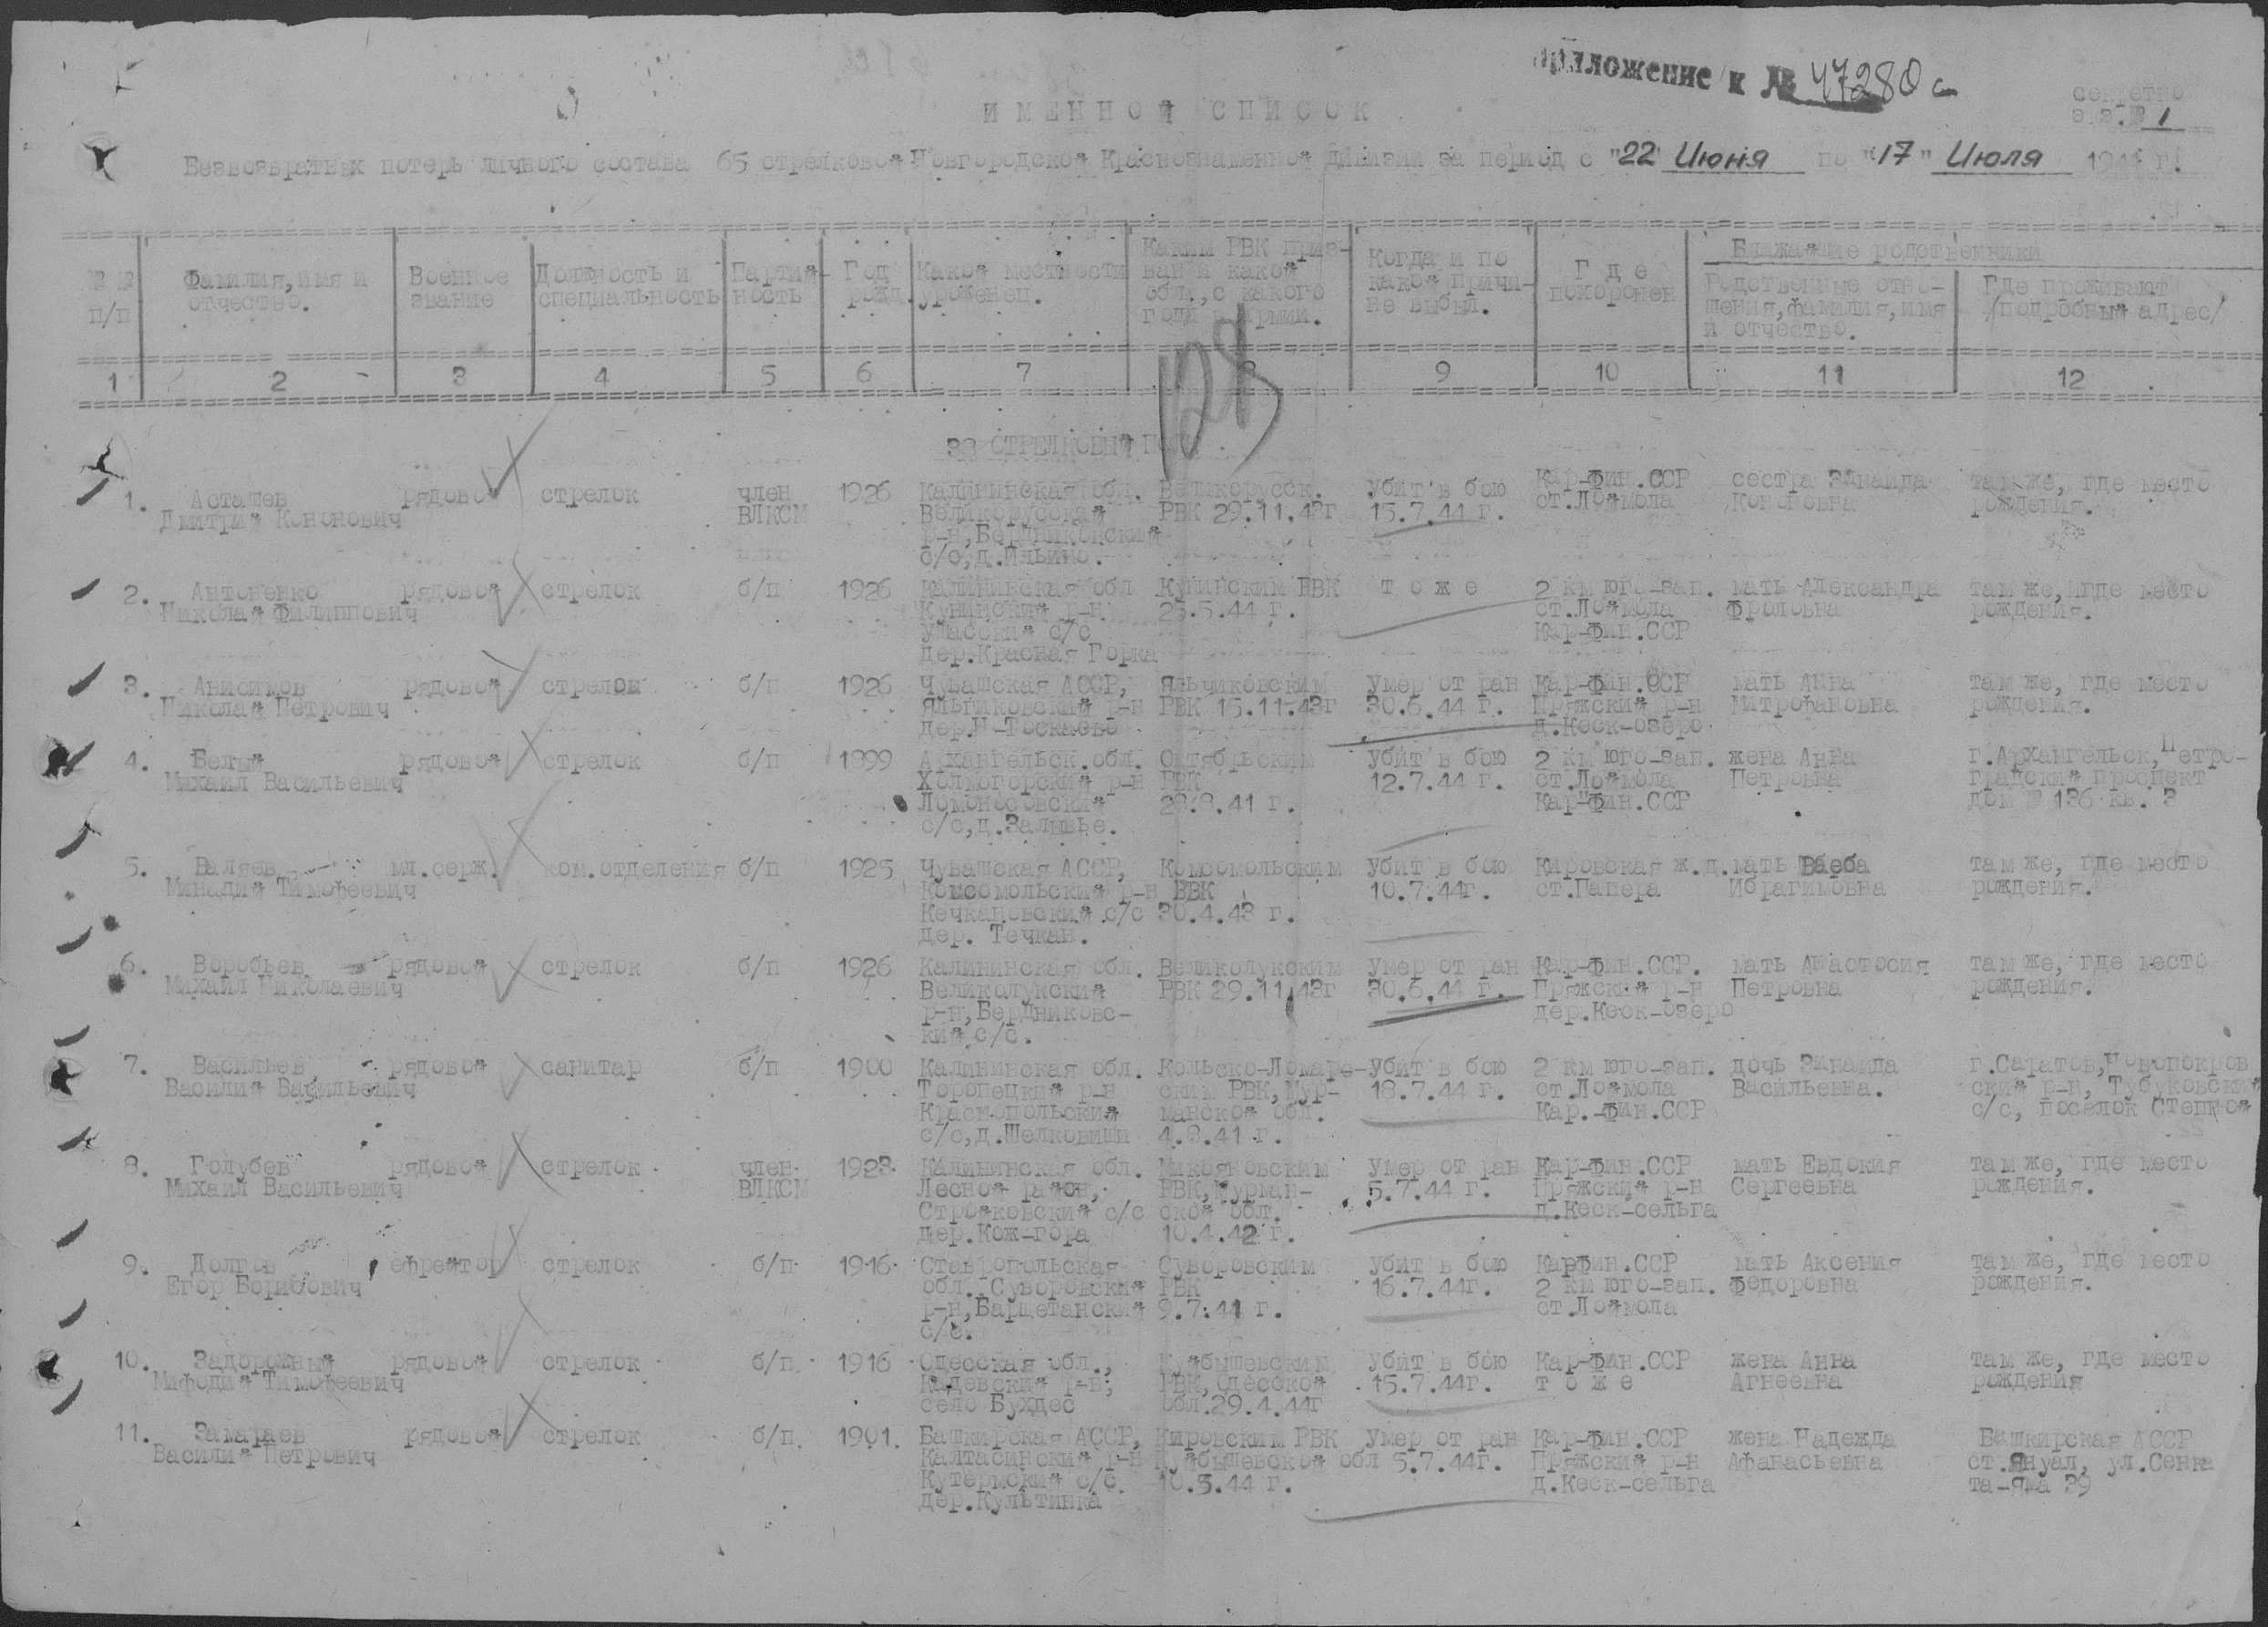 приложение к № 47280 с
секретно
экз. № 1
ИМЕННОЙ СПИСОК
Безвозвратных потерь личного состава 65 стрелковой Новгородской Краснознаменной дивизии за период с "22" Июня по "17" Июля 1944 г.
№№ п/п
Фамилия, имя и отчество.
Военное звание
Должность и специальность
Партий-ность
Год рожд.
Какой местности уроженец.
Каким РВК приз-ван и какой обл., с какого года в армии.
Когда и по какой причи-не выбыл.
Где похоронен
Ближайшие родственники
Родственные отно-шения, фамилия, имя и отчество.
Где проживают /подробный адрес/
1 2 3 4 5 6 7 8 9 10 11 12
128
38 СТРЕЛКОВЫЙ
1. Асташев рядовой стрелок член 1926 Калининская обл. Великорусск. убит в бою Кар-Фин.ССР сестра Зинаида там же, где место
Дмитрий Кононович ВЛКСМ Великорусский РВК 29.11.43г 15.7.44 г. ст.Лоймола Кононовна рождения.
р-н, Бердниковский
с/с, д.Ильино.
2. Антоненко рядовой стрелок б/п 1926 Калининская обл Куньинским РВК то же 2 км юго-зап. мать Александра там же, где место
Николай Филиппович Куньинский р-н 25.5.44 г. ст.Лоймола Фроловна рождения.
с/с Кар-Фин.ССР
дер.Красная Горка
3. Анисимов рядовой стрелок б/п 1926 Чувашская АССР, Яльчиковским умер от ран Кар-Фин.ССР мать Анна там же, где место
Николай Петрович Яльчиковский р-н РВК 15.11.43г 30.6.44 г. Пряжский р-н Митрофановна рождения.
дер.Н-Тоскаево д.Кеск-озеро
4. Белый рядовой стрелок б/п 1899 Архангельск.обл. Октябрьским убит в бою 2 км юго-зап. жена Анна г.Архангельск, Петро-
Михаил Васильевич Холмогорский р-н РВК 12.7.44 г. ст.Лоймола Петровна градский проспект
Ломоносовский 23.8.41 г. Кар-Фин.ССР дом № 136 кв. 3
с/с, д.Залывье.
5. Валяев мл.серж. ком.отделения б/п 1925 Чувашская АССР, Комсомольским убит в бою Кировская ж.д. мать там же, где место
Минадий Тимофеевич Комсомольский р-н РВК 10.7.44г. ст.Папера Ибрагимовна рождения.
Кечкановский с/с 30.4.43 г.
дер. Течкан.
6. Воробьев рядовой стрелок б/п 1926 Калининская обл. Великолукским умер от ран Кар-Фин.ССР. мать Анастосия там же, где место
Михаил Николаевич Великолукский РВК 29.11.43г 30.6.44 г. Пряжский р-н Петровна рождения.
р-н, Бердниковс- дер.Кеск-озеро
кий с/с.
7. Васильев рядовой санитар б/п 1900 Калининская обл. Кольско-Лопарс- убит в бою 2 км юго-зап. дочь Зинаида г.Саратов, Новопокров
Василий Васильевич Торопецкий р-н ским РВК, Мур- 18.7.44 г. ст.Лоймола Васильевна. ский р-н, Тубуковский
Краснопольский манской обл. Кар.-Фин.ССР с/с, поселок Степной
с/с, д.Шелковиши 4.8.41 г.
8. Голубев рядовой стрелок член 1923 Калининская обл. Микояновским умер от ран Кар-Фин.ССР мать Евдокия там же, где место
Михаил Васильевич ВЛКСМ Лесной район, РВК, Мурман- 5.7.44 г. Пряжский р-н Сергеевна рождения.
Строяковский с/с ской обл. д.Кеск-сельга
дер.Кож-гора 10.4.42 г.
9. Долгов ефрейтор стрелок б/п 1916 Ставропольская Суворовским убит в бою КарФин.ССР мать Аксения там же, где место
Егор Борисович обл. Суворовский РВК 16.7.44г. 2 км юго-зап. Федоровна рождения.
р-н, Баршетанский 9.7.41 г. ст.Лоймола
с/с.
10. Задорожный рядовой стрелок б/п 1916 Одесская обл., Куйбышевским убит в бою Кар-Фин.ССР жена Анна там же, где место
Мифодий Тимофеевич р-н, РВК, Одесской 15.7.44г. то же Агнеевна рождения
село Бухдес обл.29.4.44г
11. Замараев рядовой стрелок б/п 1901. Башкирская АССР, Кировским РВК умер от ран Кар-Фин.ССР жена Надежда Башкирская АССР
Василий Петрович Калтасинский р-н Куйбышевской обл 5.7.44г. Пряжский р-н Афанасьевна ст.Януал, ул.Сенна
Кутермский с/с 10.5.44 г. д.Кеск-сельга та-яма 39
дер.Культинка